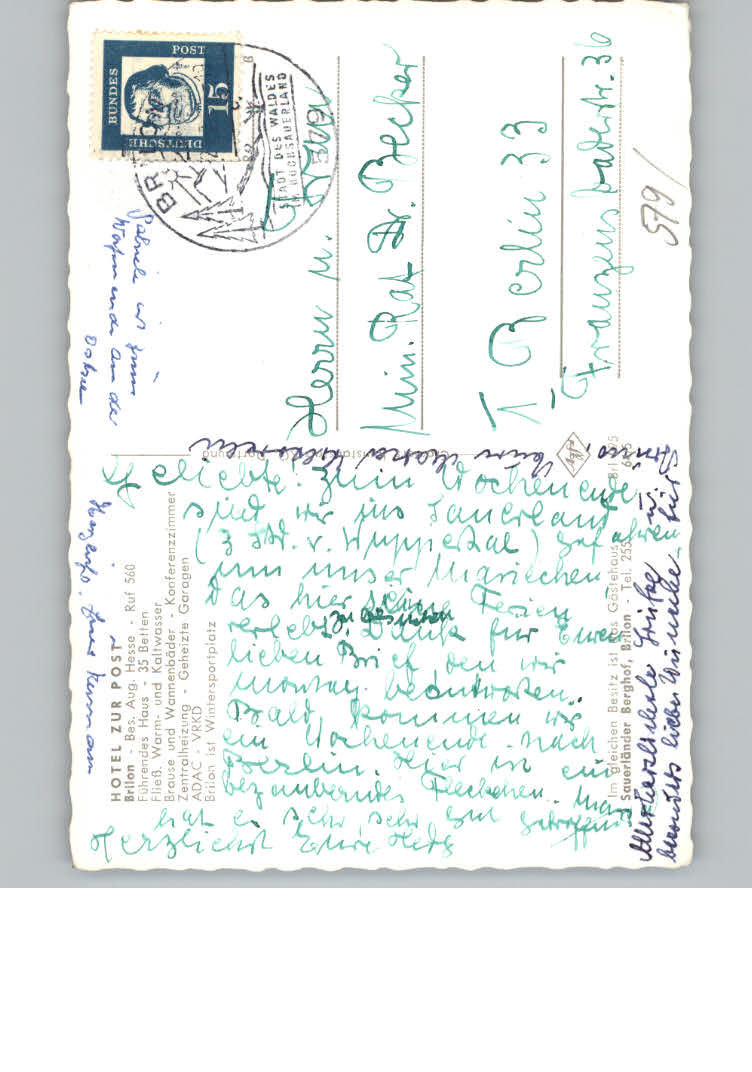 HOTEL ZUR POST
Brilon - Bes. Aug. Hesse - Ruf 560
Führendes Haus - 35 Betten
Fließ. Warm- und Kaltwasser
Brause und Wannenbäder - Konferenzzimmer
Zentralheizung - Geheizte Garagen
ADAC - VRKD
Brilon ist Wintersportplatz
Ihr Lieben! Zum Wochenende
sind wir ins Sauerland
(3 Std. v. Wuppertal) gefahren
um unser Mariechen
das hier seine Ferien
erlebt zu besuchen. Dank für Euren
lieben Brief den wir
Montag beantworten.
Bald kommen wir
ein Wochenende nach
Berlin. Hier ist ein
bezauberndes Fleckchen. Man
hat es sehr, sehr gut getroffen
Herzlichst Eure
Im gleichen Besitz ist das Gästehaus
Sauerländer Berghof, Brilon - Tel. 255
Allerherzlichste Grüße u.
besonders liebe Wünsche für
Eure Maria
Herzl.
Gabriele ist zur
an der
Ostsee
DEUTSCHE BUNDESPOST
15
STADT DES WALDES
IM HOCHSAUERLAND
Herrn u. Frau
Min. Rat Dr. Becker
1 Berlin 33
Franzensbaderstr. 36
579/